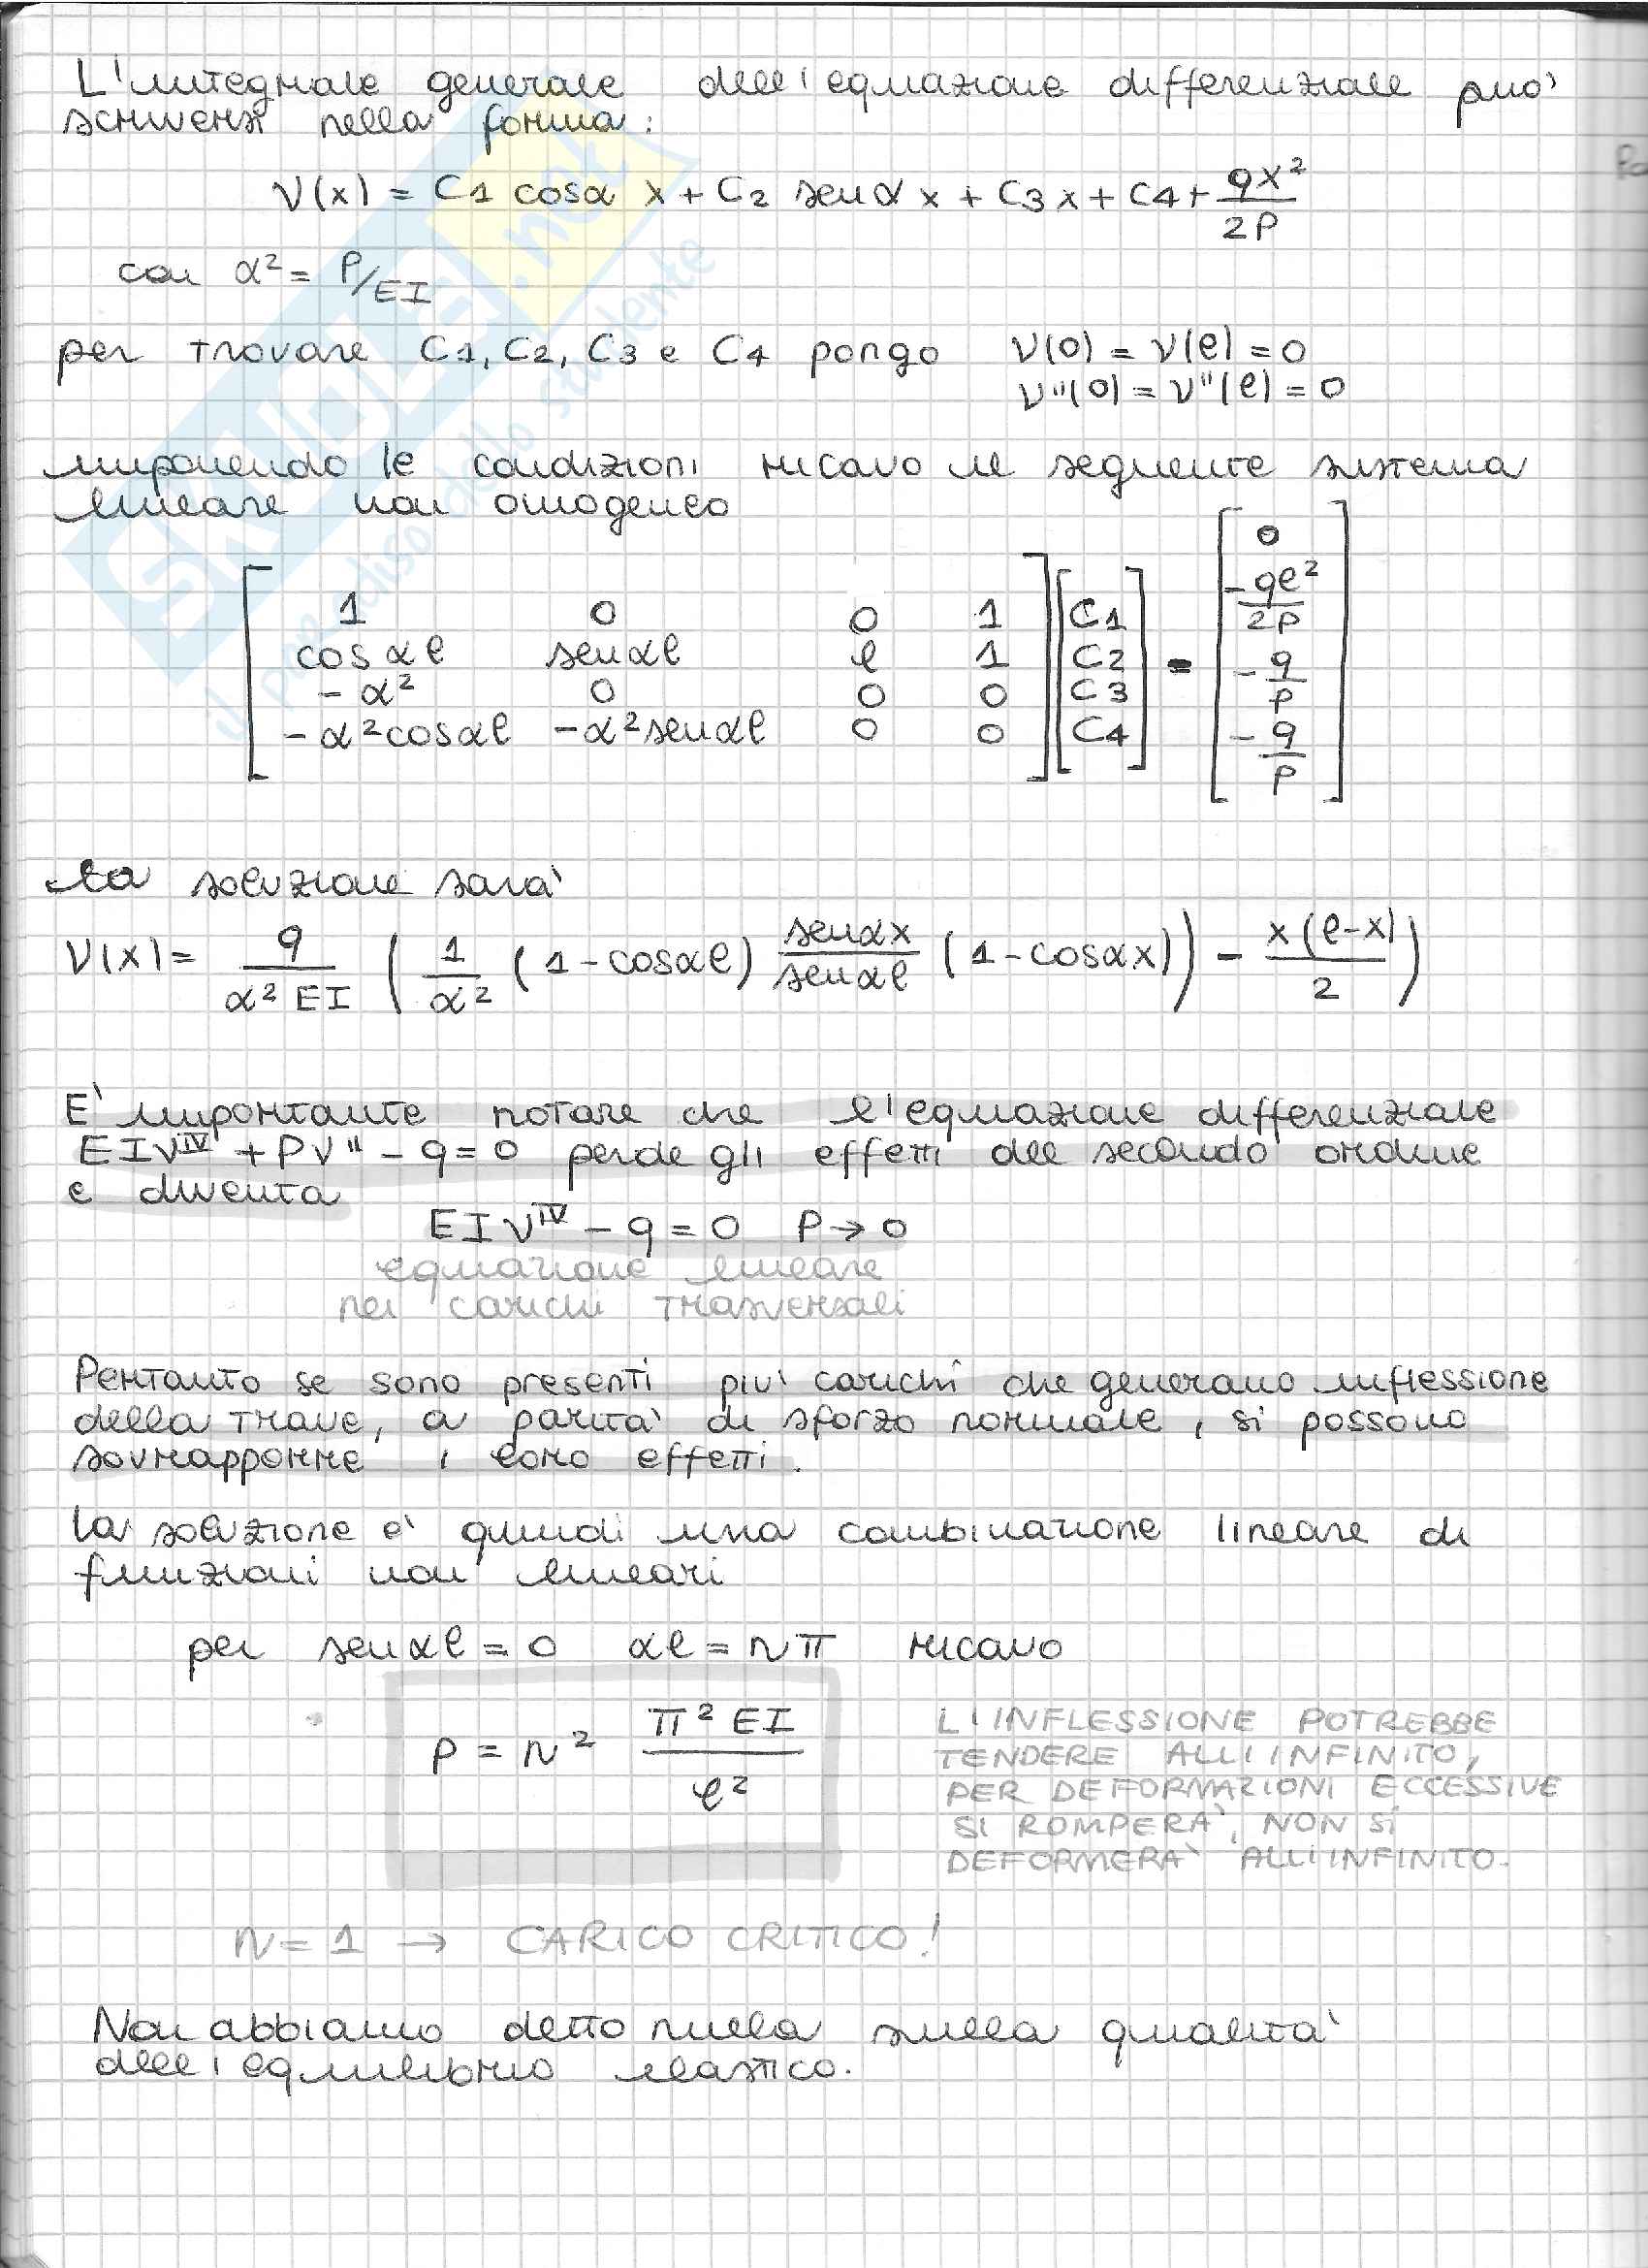 L'integrale generale dell'equazione differenziale può
scriversi nella forma:
V(x) = C1 cosα x + C2 senα x + C3 x + C4 + qx²/2P
con α² = P/EI
per trovare C1, C2, C3 e C4 pongo V(0) = V(l) = 0
V''(0) = V''(l) = 0
imponendo le condizioni ricavo il seguente sistema
lineare non omogeneo
[1 0 0 1] [C1] = [0]
[cos αl senαl l 1] [C2] [-ql²/2P]
[-α² 0 0 0] [C3] [-q/P]
[-α²cosαl -α²senαl 0 0] [C4] [-q/P]
la soluzione sarà
V(x) = q/α²EI (1/α² (1-cosαl) senαx/senαl (1-cosαx)) - x(l-x)/2)
E' importante notare che l'equazione differenziale
EIV^IV + PV'' - q = 0 perde gli effetti del secondo ordine
e diventa
EIV^IV - q = 0 P → 0
equazione lineare
nei carichi trasversali
Pertanto se sono presenti più carichi che generano inflessione
della trave, a parità di sforzo normale, si possono
sovrapporre i loro effetti.
la soluzione è quindi una combinazione lineare di
funzioni non lineari
per senαl = 0 αl = nπ ricavo
P = n² π²EI/l²
L'INFLESSIONE POTREBBE
TENDERE ALL'INFINITO,
PER DEFORMAZIONI ECCESSIVE
SI ROMPERÀ, NON SI
DEFORMERÀ ALL'INFINITO.
n = 1 → CARICO CRITICO!
Non abbiamo detto nulla sulla qualità
dell'equilibrio elastico.
SKUOLA.net
il paradiso dello studente